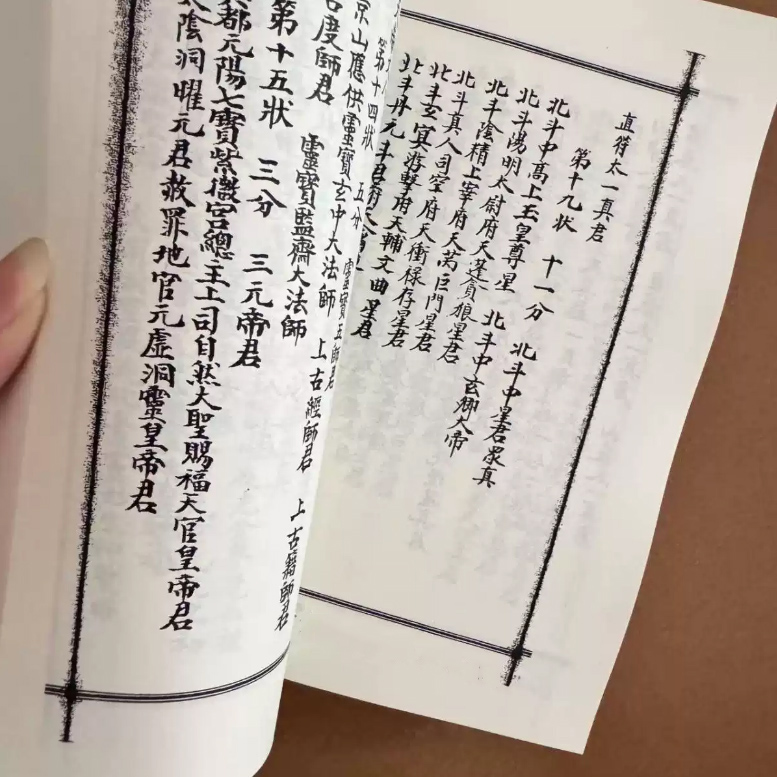 直符太一真君
第十九状 十一分 北斗中星君眾真
北斗中髙上玉皇尊星 北斗中玄卿大帝
北斗陽明太尉府天蓬貪狼星君
北斗陰精上宰府天芮巨門星君
北斗真人司空府天衝祿存星君
北斗玄冥游擊府天輔文曲星君
北斗丹元斗君府天
第十四狀 五分 靈寶五師君
京山應供靈寶玄中大法師 上古經師君 上古籍師君
古度師君 靈寶監齋大法師
第十五狀 三分 三元帝君
都元陽七寶紫微宮總主上司自然大聖賜福天官皇帝君
陰洞曜元君赦罪地官元虛洞靈皇帝君